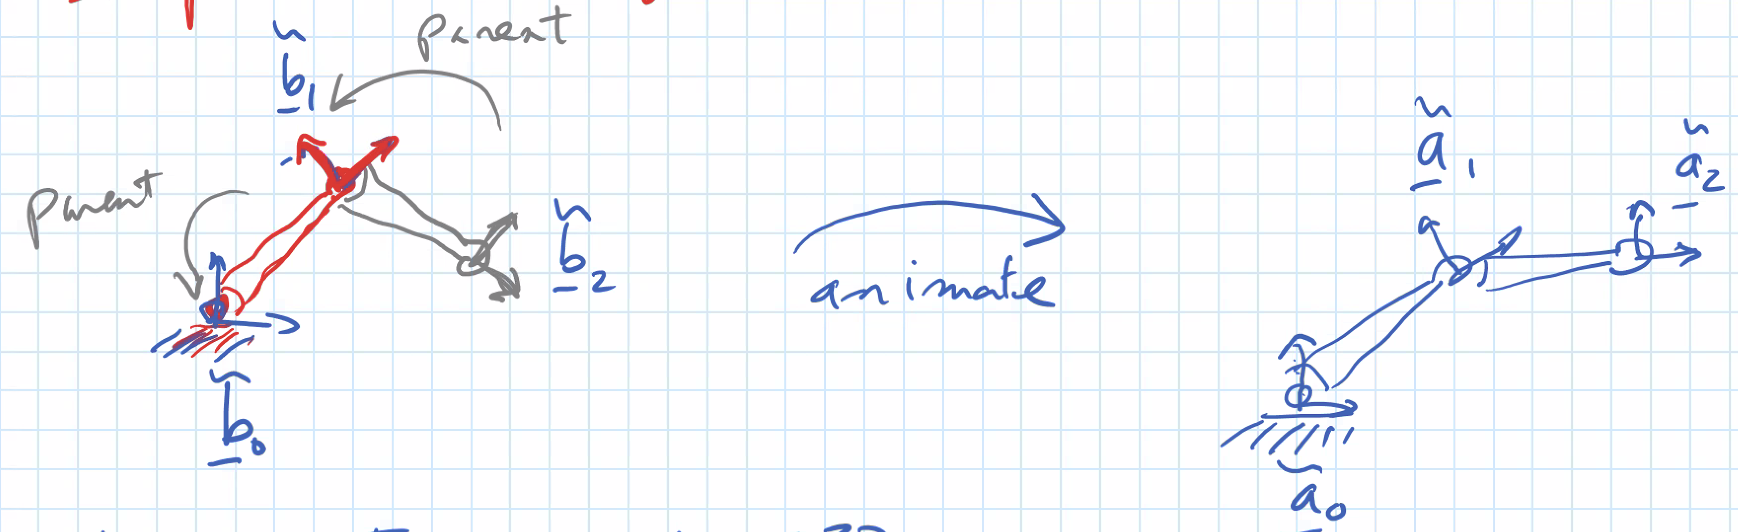 Parent
b̃₁
Parent
b̃₂
b̃₀
animate
ã₁
ã₂
ã₀